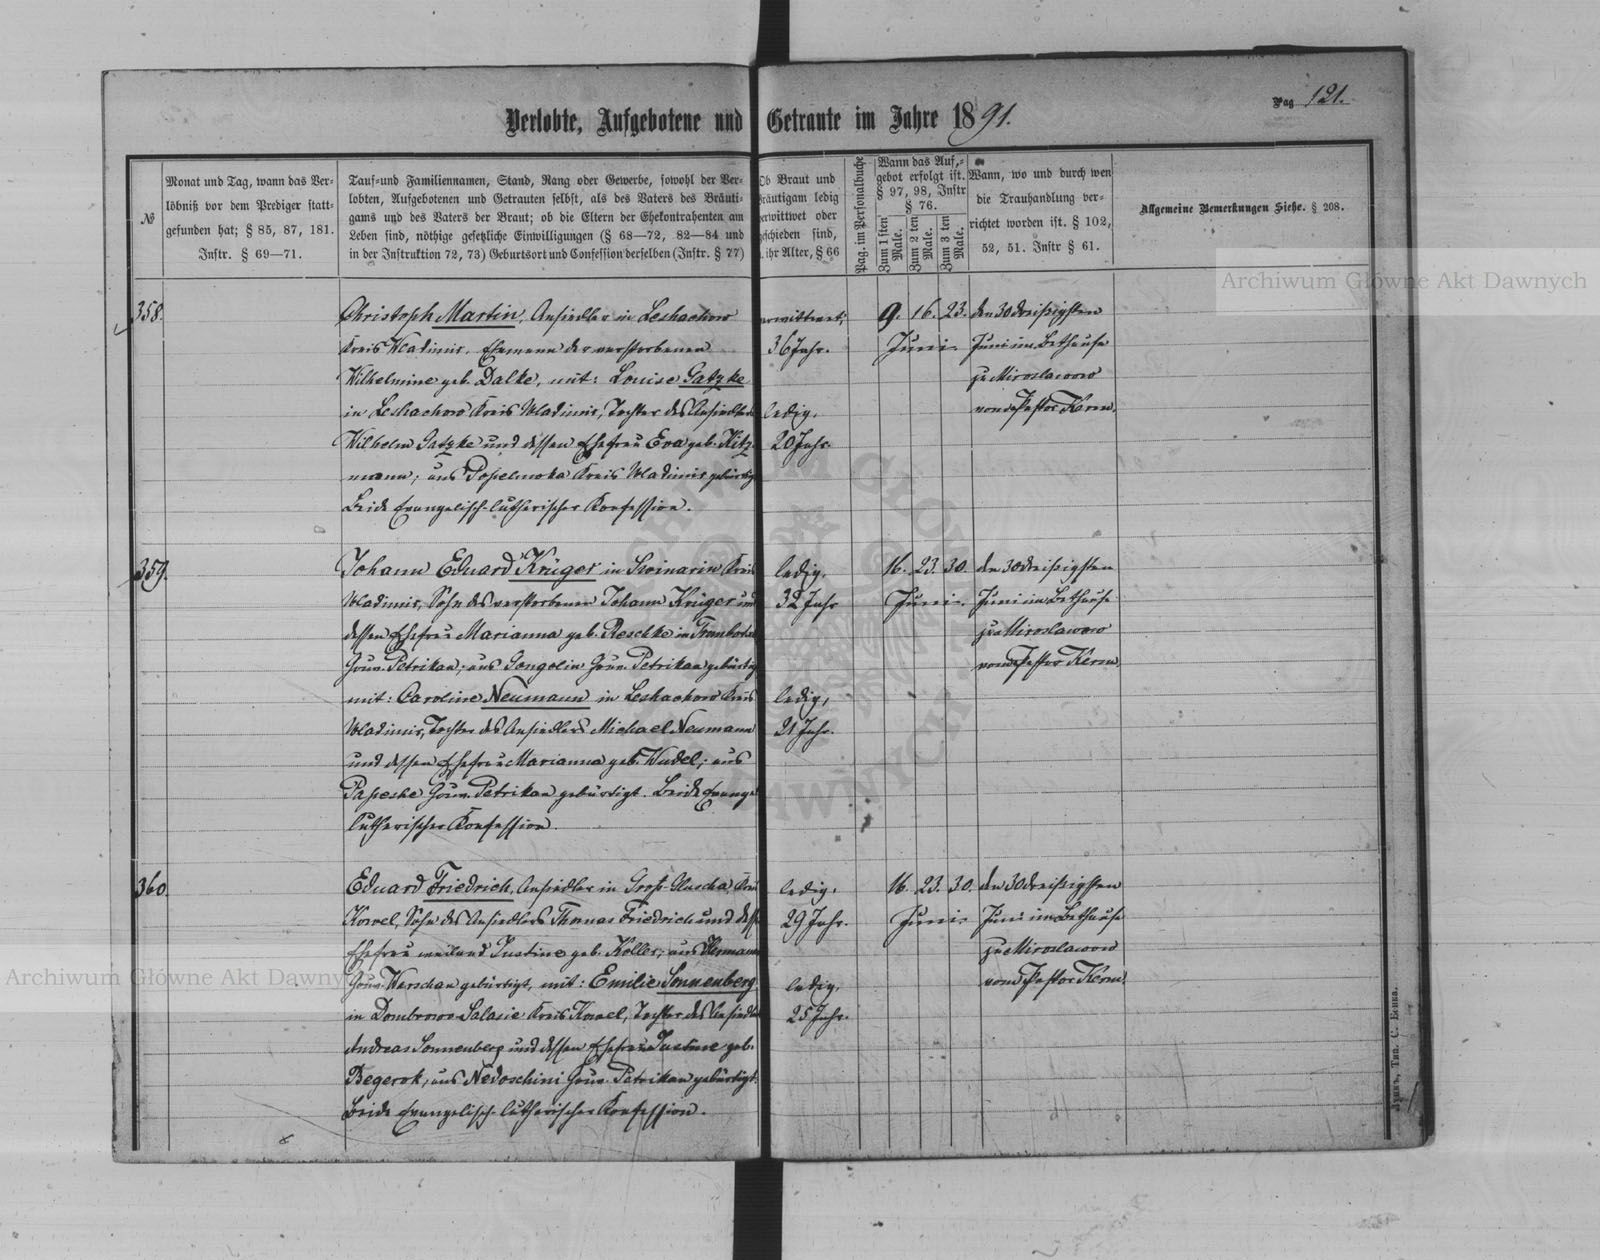 Pag 121.
Verlobte, Aufgebotene und Getraute im Jahre 1891.
№
Monat und Tag, wann das Ver-
löbniß vor dem Prediger statt-
gefunden hat; § 85, 87, 181.
Instr. § 69—71.
Tauf-und Familiennamen, Stand, Rang oder Gewerbe, sowohl der Ver-
lobten, Aufgebotenen und Getrauten selbst, als des Vaters des Bräuti-
gams und des Vaters der Braut; ob die Eltern der Ehekontrahenten am
Leben sind, nöthige gesetzliche Einwilligungen (§ 68—72, 82—84 und
in der Instruktion 72, 73) Geburtsort und Confession derselben (Instr. § 77)
Ob Braut und
Bräutigam ledig
verwittwet oder
geschieden sind,
ihr Alter, § 66
Pag. im Personalbuche
Wann das Auf-
gebot erfolgt ist.
§ 97, 98, Instr
§ 76.
Zum 1 sten Male.
Zum 2 ten Male.
Zum 3 ten Male.
Wann, wo und durch wen
die Trauhandlung ver-
richtet worden ist. § 102,
52, 51. Instr § 61.
Allgemeine Bemerkungen Siehe. § 208.
358.
Christoph Martin, Ansiedler in Leshachow
Kreis Wladimir, Ehemann der verstorbenen
Wilhelmine geb. Dalke, mit: Louise Gatzke
in Leshachow Kreis Wladimir, Tochter des Ansiedlers
Wilhelm Gatzke und dessen Ehefrau Eva geb. Kitz-
mann; aus Popelmoka Kreis Wladimir gebürtig
Beide Evangelisch-lutherischer Konfession.
verwittwet;
36 Jahr.
ledig,
20 Jahr.
9. 16. 23.
Juni.
den 30 dreißigsten
Juni im Bethause
zu Miroslawow
vom Pastor Kern.
359.
Johann Eduard Krüger in Swinarin Kreis
Wladimir, Sohn des verstorbenen Johann Krüger und
dessen Ehefrau Marianna geb. Reschke in
Gouv. Petrikau; aus Gongolin Gouv. Petrikau gebürtig
mit: Caroline Neumann in Leshachow Kreis
Wladimir, Tochter des Ansiedlers Michael Neumann
und dessen Ehefrau Marianna geb. Wudel; aus
Papeske Gouv. Petrikau gebürtigt. Beide Evangel
lutherischer Konfession.
ledig,
32 Jahr
ledig,
21 Jahr.
16. 23. 30.
Juni.
den 30 dreißigsten
Juni im Bethause
zu Miroslawow
vom Pastor Kern.
360.
Eduard Friedrich, Ansiedler in Groß-Gluscha, Kreis
Kowel, Sohn des Ansiedlers Thomas Friedrich und dess.
Ehefrau weiland Justine geb. Koller; aus Hermann
Gouv. Warschau gebürtigt, mit: Emilie Sonnenberg
in Dombrowo-Salasie Kreis Kowel, Tochter des Ansiedlers
Andreas Sonnenberg und dessen Ehefrau Justine geb.
Begerok; aus Nedoschini Gouv. Petrikau gebürtigt.
Beide Evangelisch-lutherischer Konfession.
ledig,
29 Jahr.
ledig,
25 Jahr.
16. 23. 30.
Juni.
den 30 dreißigsten
Juni im Bethause
zu Miroslawow
vom Pastor Kern.
Archiwum Główne Akt Dawnych
Archiwum Główne Akt Dawnych